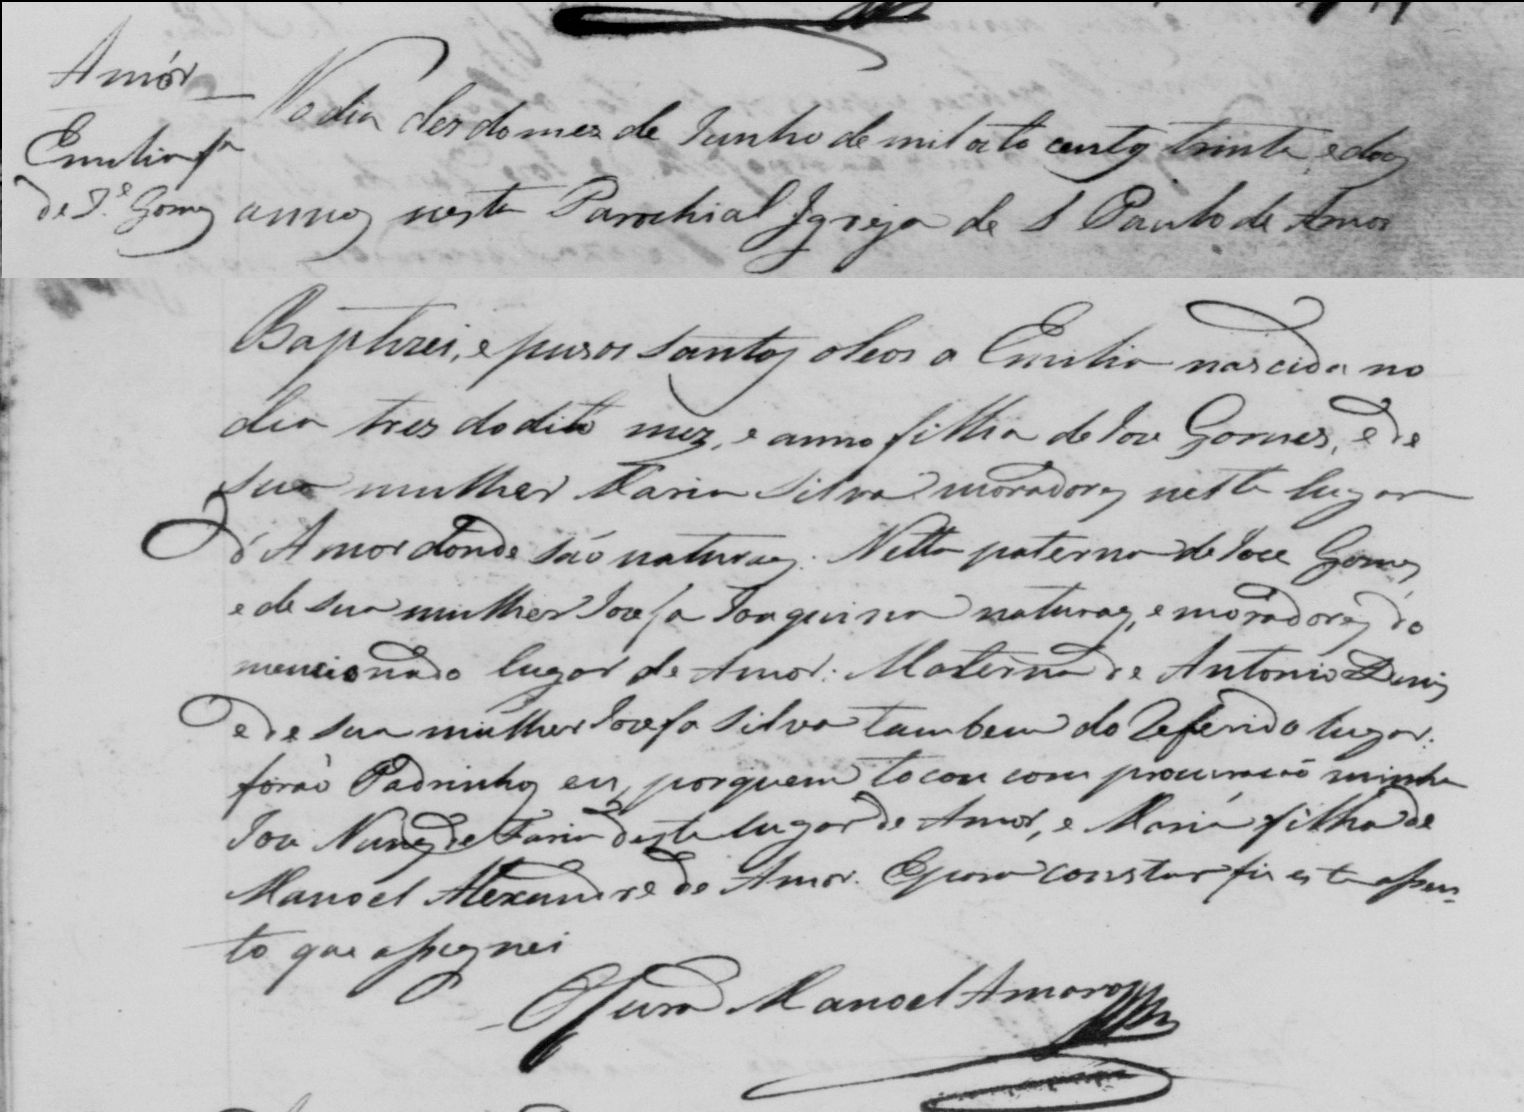 Amór
Emilia fa
de Je. Gomes
No dia des do mez de Junho de mil oito centos trinta e dous
annos nesta Parochial Igreja de S Paulo de Amor
Baptizei, e puz os santos oleos a Emilia nascida no
dia tres do dito mez, e anno filha de Joze Gomes, e de
sua mulher Maria Silva moradores neste lugar
d'Amor donde são naturaes. Netta paterna de Joze Gomes
e de sua mulher Josefa Joaquina naturaes, e moradores do
mencionado lugar de Amor: Materna de Antonio Diniz
e de sua mulher Josefa Silva tambem do referido lugar.
forão Padrinhos eu, por quem tocou com procuração minha
Joze Nunes de Faria deste lugar de Amor, e Maria filha de
Manoel Alexandre de Amor. E para constar fiz este assen-
to que assignei
O Cura Manoel Amaro